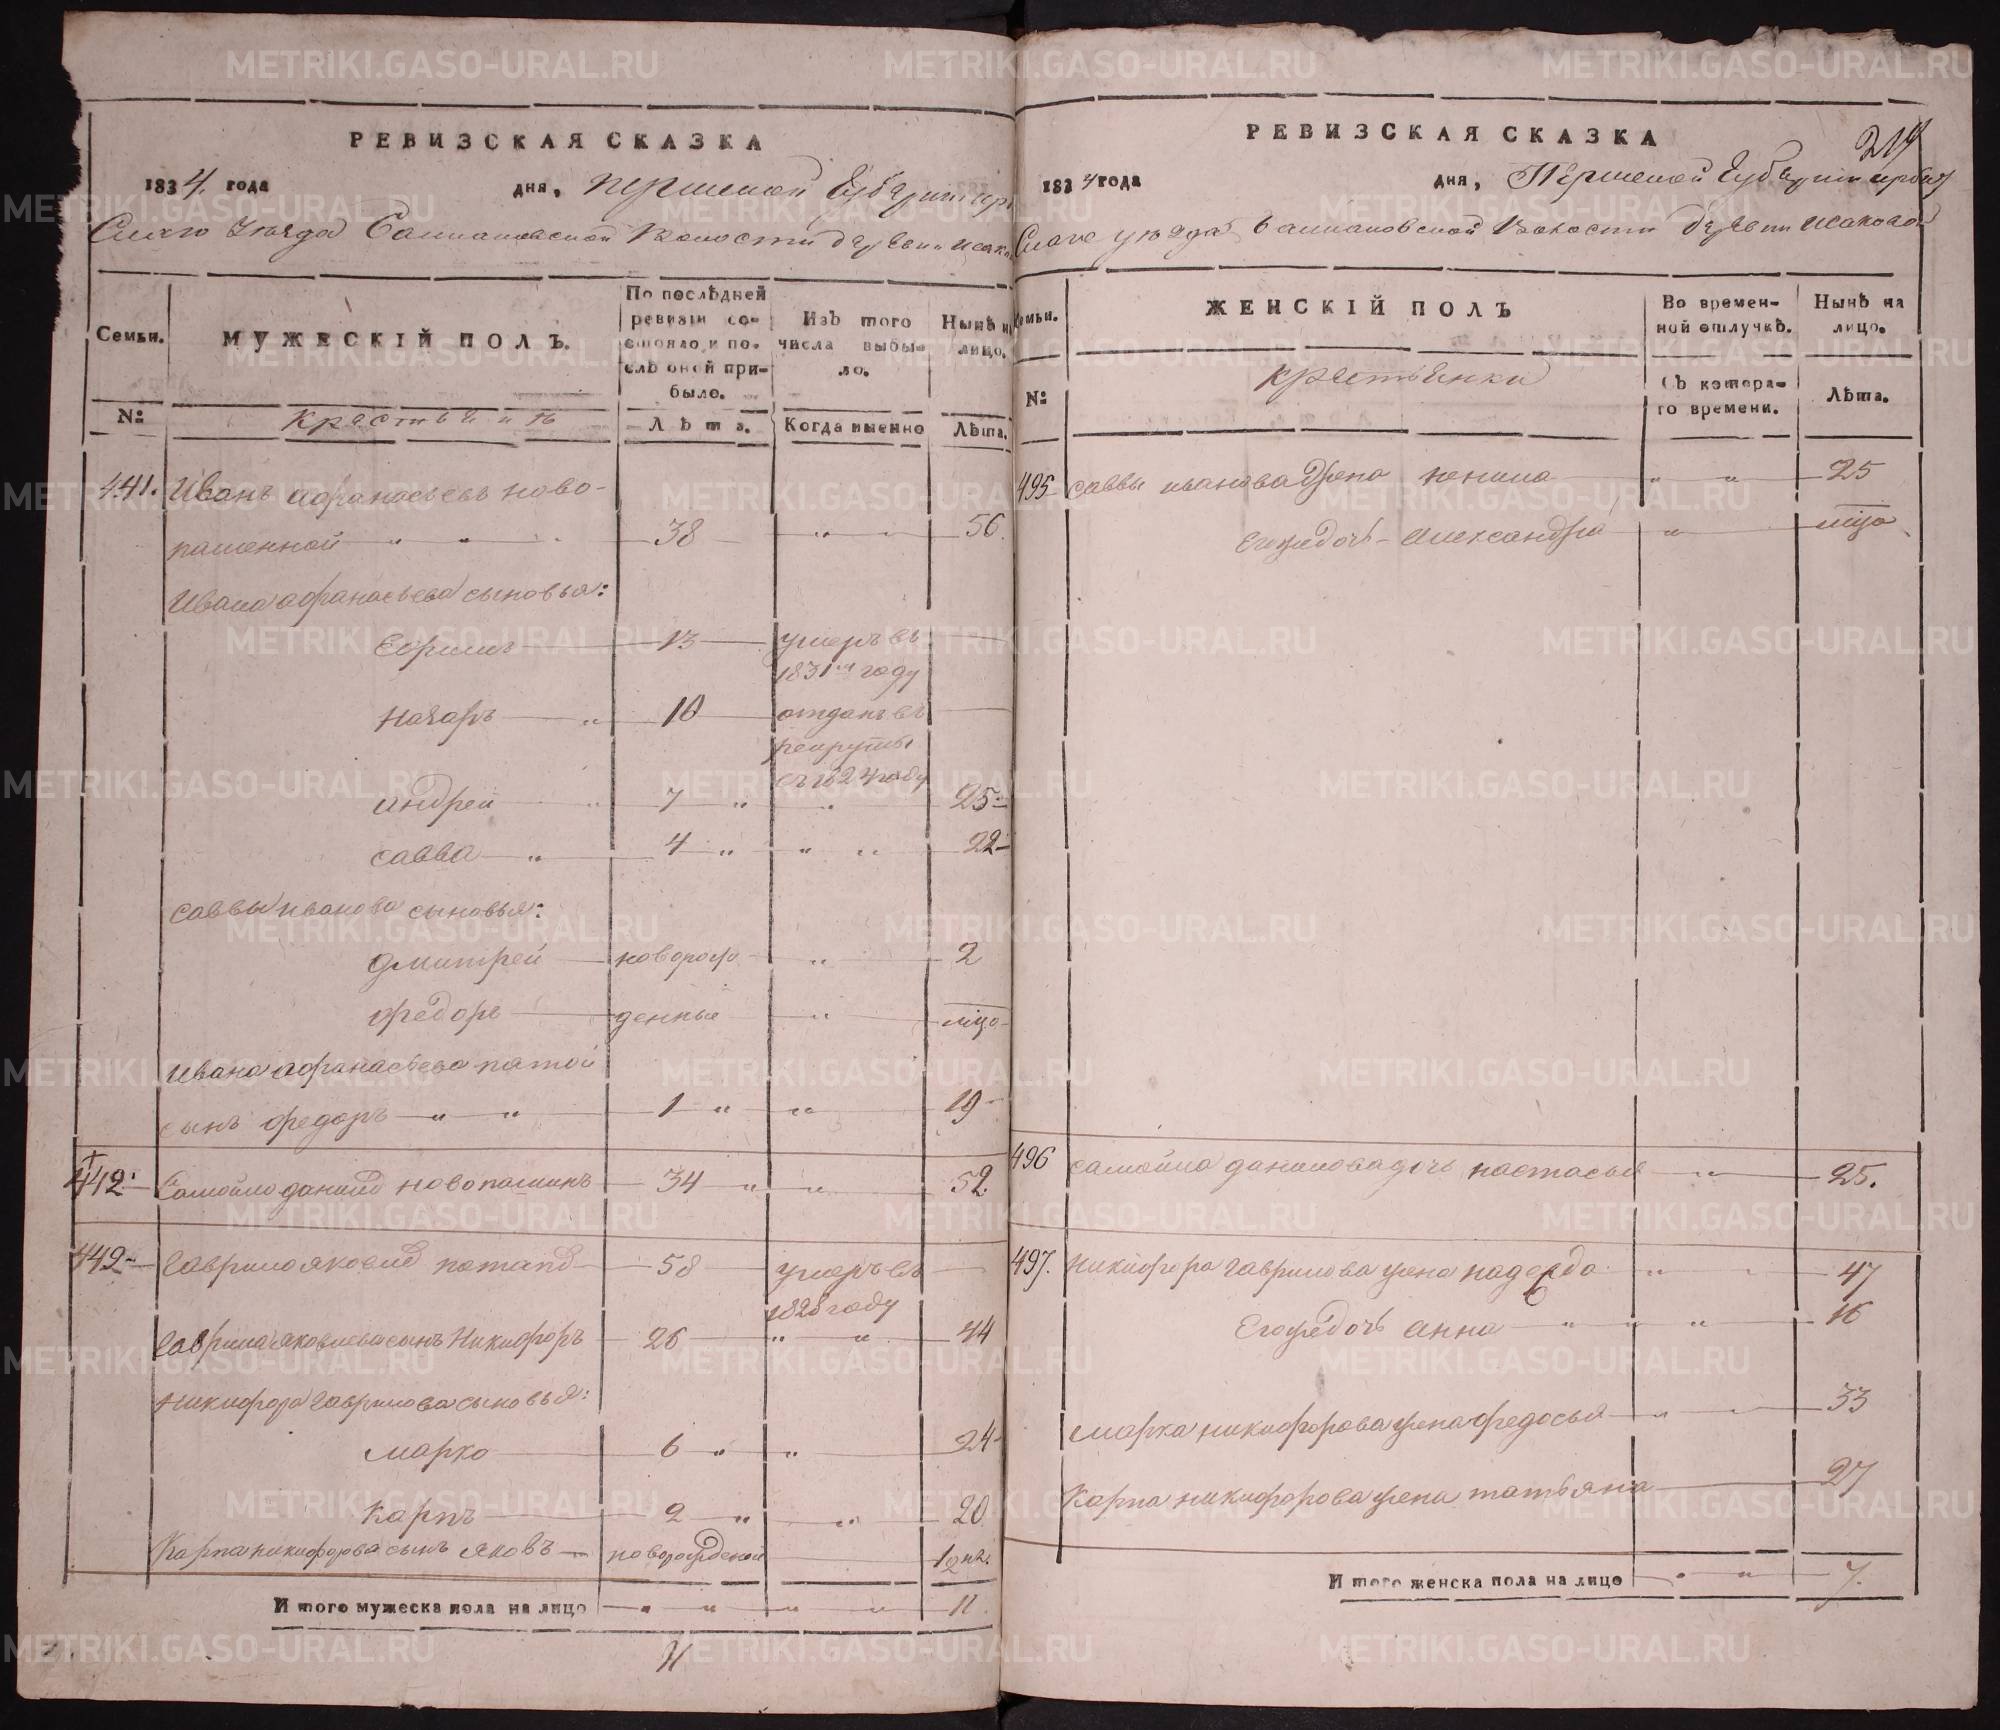 РЕВИЗСКАЯ СКАЗКА
1834. года дня, Пермской Губернии Ир
Скаго Уезда волости деревни
Семьи.
МУЖЕСКІЙ ПОЛЪ.
По послѣдней ревизіи состояло, и послѣ оной прибыло.
Изъ того числа выбыло.
Нынѣ на лицо.
№:
Крестьянъ
Лѣта.
Когда именно
Лѣта.
441. Иванъ Афанасьевъ Ново-
пашенной " " " 38 " " 56.
Ивана Афанасьева сыновья:
Ефимъ 13 умеръ въ
1831м году
Назаръ " 10 отданъ въ
рекруты
въ 1824 году
Андрей " 7 " " 25
Савва " 4 " " " 22
Саввы Иванова сыновья:
Дмитрей новорож " 2
Федоръ денные " 1/2 го
Ивана Афанасьева пятой
сынъ Федоръ " " 1 " " 19
442. Самойло Данилов Новопашинъ 34 " " 52.
442 Гаврило Яковлев Потапов 58 умеръ въ
1828 году
Гаврила Яковлева сынъ Никифоръ 26 " " 44
Никифора Гаврилова сыновья:
Марко 6 " " 24
Карпъ 2 " " 20
Карпа Никифорова сынъ Яковъ новорожденой 1
Итого мужеска пола на лицо " " " " 11.
РЕВИЗСКАЯ СКАЗКА
214
1834 года дня, Пермской Губернии Ирбит
Скаго уезда волости деревни
Семьи.
ЖЕНСКІЙ ПОЛЪ
Во временной отлучкѣ.
Нынѣ на лицо.
№:
Крестьянки
Съ котораго времени.
Лѣта.
495 Саввы Иванова жена Ненила " " 25
Егожедочь Александра " 1/2 го
496 Самойла Данилова дочь Настасья " 25.
497. Никифора Гаврилова жена Надежда " " 47
Егожедочь Анна " " " " 16
Марка Никифорова жена Федосья " " 33
Карпа Никифорова жена Татьяна 27
Итого женска пола на лицо " " 7.
METRIKI.GASO-URAL.RU